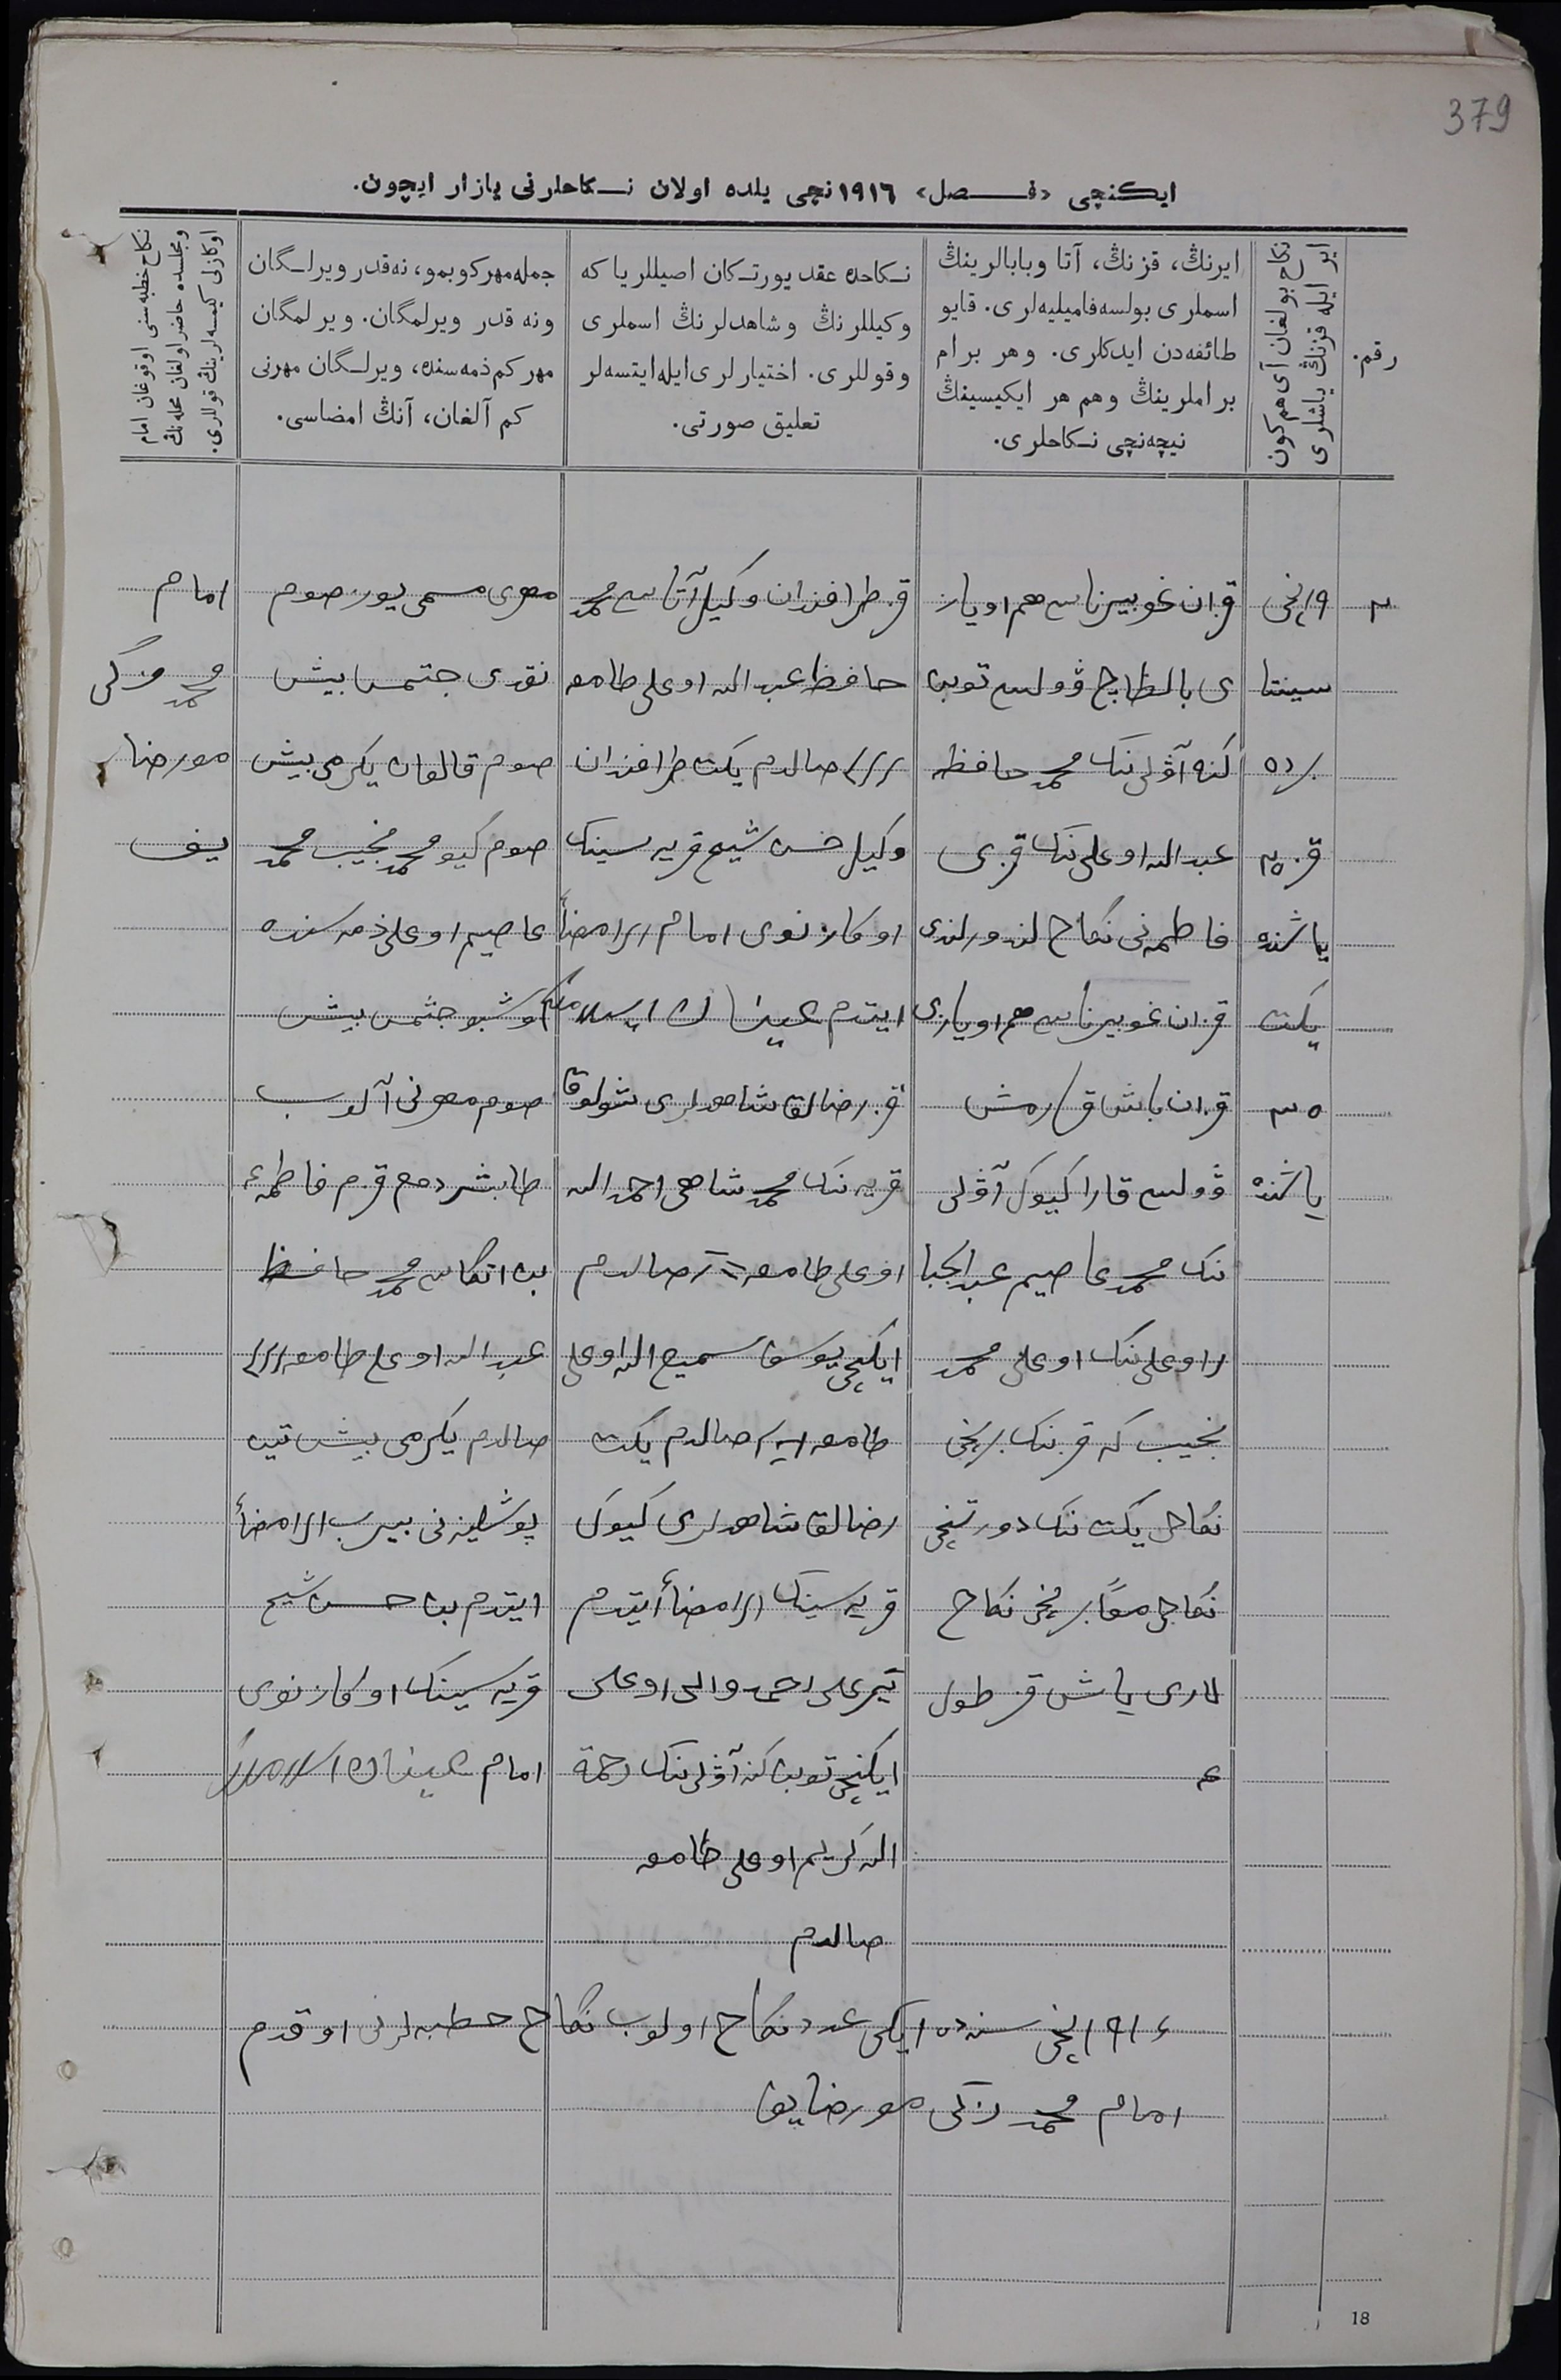 379
ایكنچی «فـــصل» ١٩١٦ نچی یلده اولان نـكاحلرنی یازار ایچون.
رقم.
نكاح بولغان آی هم كون
ایر ایله قزنڭ یاشلری
ایرنڭ، قزنڭ، آتا وبابالرینڭ
اسملری بولسه فامیلیه‌لری. قایو
طائفه‌دن ایدكلری. وهر برام
براملرینڭ وهم هر ایكیسینڭ
نیچه‌نچی نـكاحلری.
نـكاحده عقد یورتـكان اصیللر یا كه
وكیللرنڭ وشاهدلرنڭ اسملری
وقوللری. اختیارلری ایله ایتسه‌لر
تعلیق صورتی.
جمله مهر كوبمو، نه‌قدر ویرلـگان
ونه قدر ویرلمگان. ویرلمگان
مهر كم ذمه‌سنده، ویرلـگان مهرنی
كم آلغان، آنڭ امضاسی.
نكاح خطبه‌سنی اوقوغان امام
ومجلسده حاضر اولغان محله‌نڭ
اوكازلی كیمسه‌لرینڭ قوللری.
٢
سینتا
برده
قز ٢٥
یاشنده
یكت
٣٥
یاشنده
قزان غوبیرناسی هم اویاز
ی بالطاچ ڤولسی توبن
كنه آڤلی ننك محمد حافظ
عبد الله اوغلی ننك قزی
فاطمه‌نی نكاح لندورلندی
قزان غوبیرناسی هم اویازی
قزان باش قارمش
ڤولسی قارا كیوك آڤلی
ننك محمد عاصیم عبد الجبا
ر اوغلی ننك اوغلی محمد
نجیب كه قزننك برنچی
نكاحی یكت ننك دورتنچی
نكاحی معاً برنچی نكاح
لاری یاش قز طول
قز طرافندان وكیل آتاسی محمد
حافظ عبد الله اوغلی طامغه
صالدم یكت طرافندان
وكیل حسن شیخ قریه سینك
اوكازنوی امام امضأ
ایتدم
قز رضالق شاهدلری شولوق
قریه ننك محمد شاهی احمد الله
اوغلی طامغه صالدم
ایكنچی یوسف سمیع الله اوغلی
طامغه صالدم یكت
رضالق شاهدلری كیوك
قریه سینك امضأ ایتدم
احمد والی اوغلی
ایكنچی توبن كنه آڤلی ننك رحمة
الله كریم اوغلی طامغه
صالدم
مهری مسمی یوز صوم
نقدی جتمس بیش
صوم قالغان یكرمی بیش
صوم كیو محمد نجیب محمد
عاصیم اوغلی ذمه سنده
اوشبو جتمس بیش
صوم مهرنی آلوب
طابشردم قزم فاطمه غه
بن اتكاسی محمد حافظ
عبد الله اوغلی طامغه
صالدم یكرمی بیش تین
پوشلینه‌نی بیرب امضأ
ایتدم بن حسن شیخ
قریه سینك اوكازنوی
امام
امام
محمد زكی
مورضا
یف
١٩١٦ نچی سنه‌ده ایكی عدد نكاح اولوب نكاح خطبه لرنی اوقدم
امام محمد زكی مورضایف
18